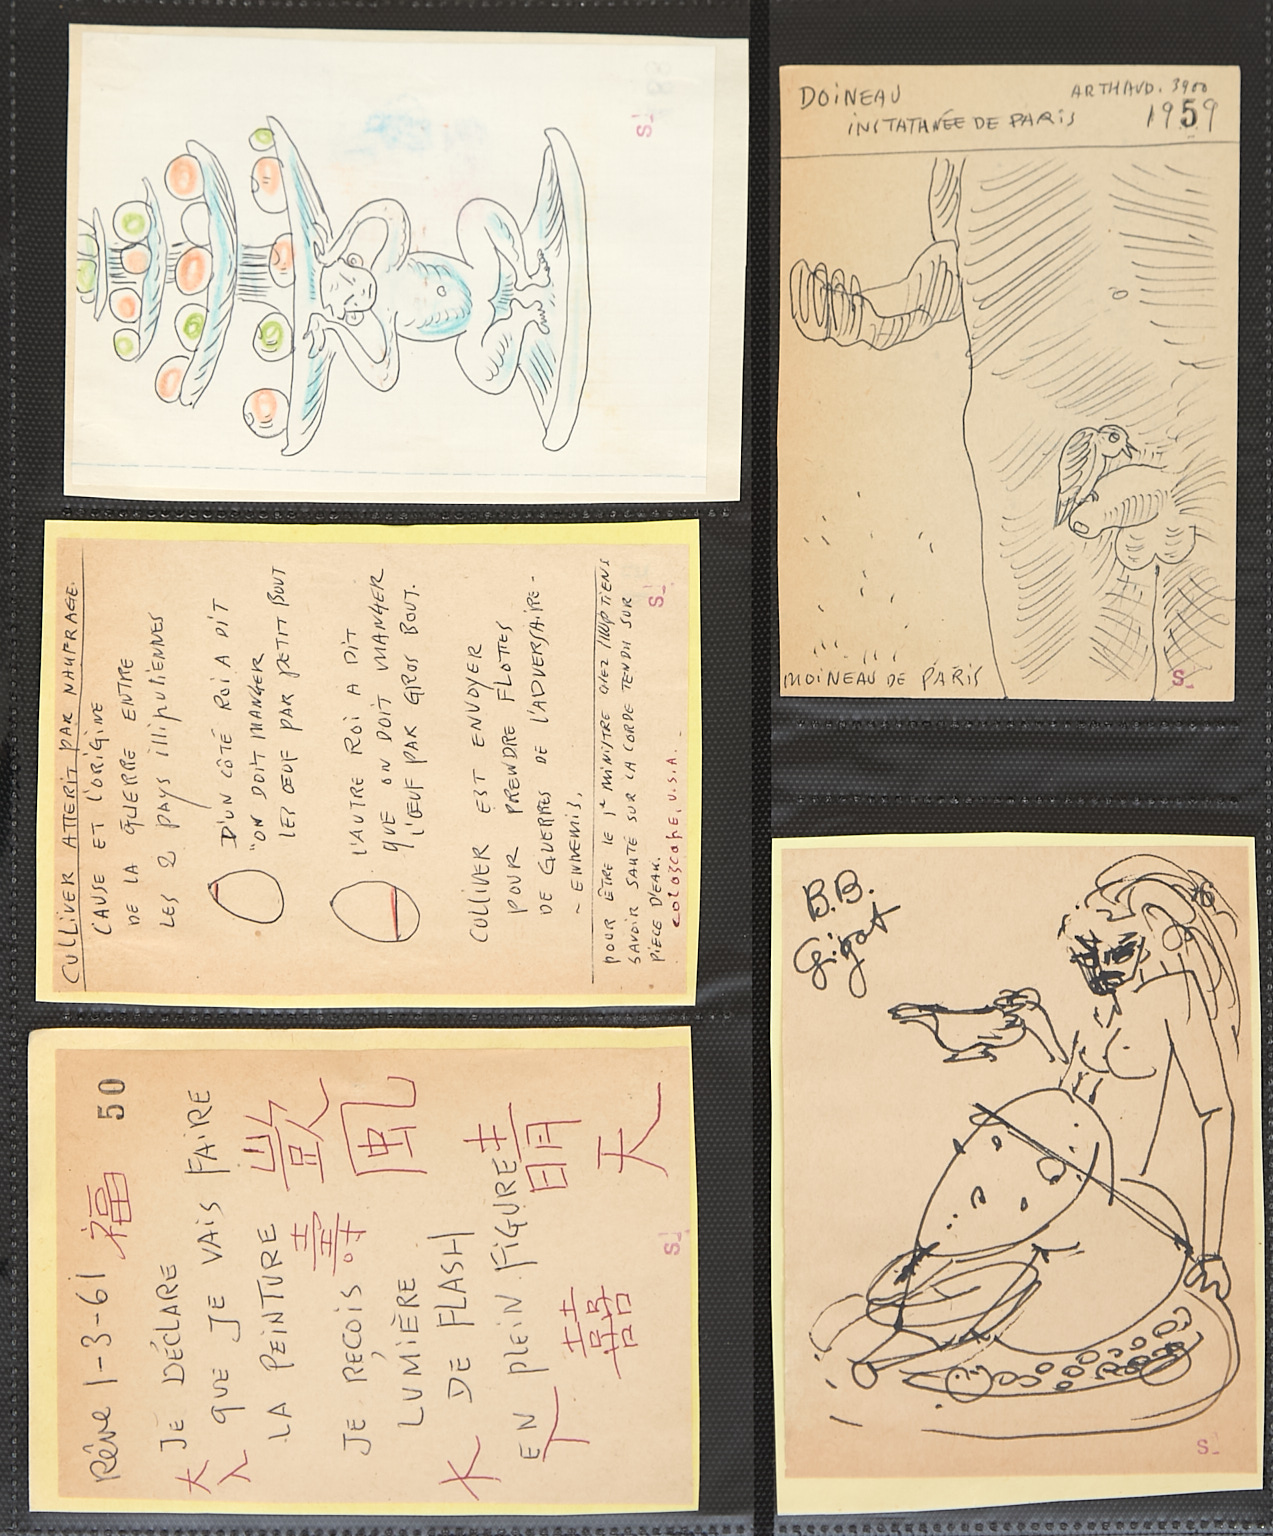 S_
CULLIVER ATTERIT PAR NAUFRAGE.
CAUSE ET L'ORIGINE
DE LA GUERRE ENTRE
LES 2 PAYS illiputiennes
D'UN CÔTÉ ROI A DIT
"ON DOIT MANGER
LES ŒUF PAR PETIT BOUT
L'AUTRE ROI A DIT
QUE ON DOIT MANGER
L'ŒUF PAR GROS BOUT.
CULLIVER EST ENVOYER
POUR PRENDRE FLOTTES
DE GUERRES DE L'ADVERSAIRE-
~ ENNEMIS,
POUR ÊTRE LE 1e MINISTRE CHEZ
SAVOIR SAUTÉ SUR LA CORDE TENDU SUR
PIÈCE D'EAU.
COLOSCOPE, U.S.A.
S_
Rêve 1-3-61 福 50
JE DÉCLARE
QUE JE VAIS FAIRE
LA PEINTURE
JE REÇOIS
LUMIÈRE
DE FLASH
EN PLEIN FIGURE
大
人
寿
歓
風
晴
天
大
人
囍
S_
DOINEAU ARTHAUD. 3900
INSTATANÉE DE PARIS 1959
MOINEAU DE PARIS
S_
B.B.
Gigot
76
S_